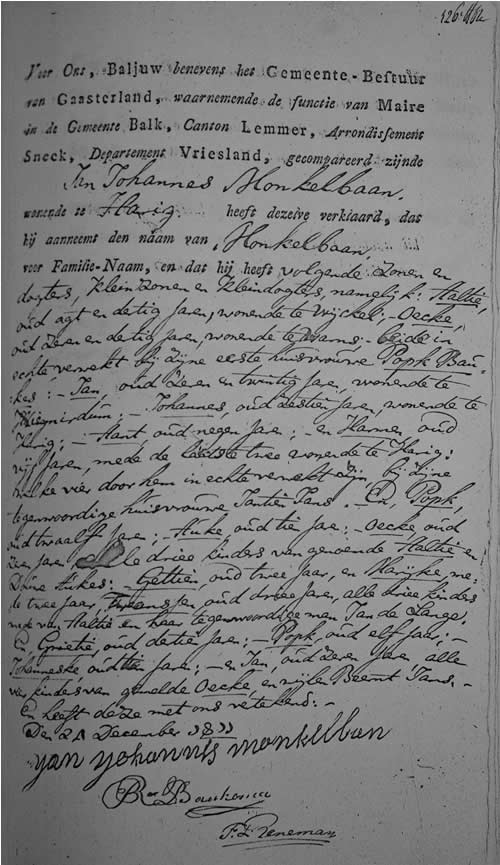 126ste Acte
Voor Ons, Baljuw benevens het Gemeente-Bestuur
van Gaasterland, waarnemende de functie van Maire
in de Gemeente Balk, Canton Lemmer, Arrondissement
Sneek, Departement Vriesland, gecompareerd zijnde
Jan Johannes Monkelbaan.
wonende te Harig heeft dezelve verklaard, dat
hij aanneemt den naam van Monkelbaan,
voor Familie-Naam, en dat hij heeft volgende zonen en
dogters, kleinzonen en kleindogters, namelijk: Haltie,
oud agt en dertig jaren, wonende te Wijckel; - Oecke,
oud zeven en dertig jaren, wonende te - beide in
echte verwekt bij zijne eerste huisvrouwe Popk Bau-
kes: - Jan, oud zeven en twintig jaren, wonende te
Mirnsirdum; - Johannes, oud zestien jaren, wonende te
Harig; - oud negen jaren; - en Harmen oud
vijf jaren, mede de laatste twee wonende te Harig:
welke vier door hem in echte verwekt zijn, bij zijne
tegenwoordige huisvrouwe Jantien Jans. - En, Popk,
oud twaalf jaren; - Auke oud tie jaar; - Oecke oud
zeven jaren, alle drie kinders van genoemde Haltie en
Aukes; - oud twee jaar, en me-
de twee jaar, Frans, en oud drie jaren, alle drie kinders
mede van Haltie en haar tegenwoordige man Jan de Lange.
En, Grietie, oud dertie jaren; - Popk, oud elf jaar; -
Johanneske oud tien jaren; - en Jan, oud zeven jaren alle
vier kinders van gemelde Oecke, en wijlen Beernt Jans. -
En heeft deze met ons getekend: -
Den 21 December 1811
yan yohannis monkelban
Baukema